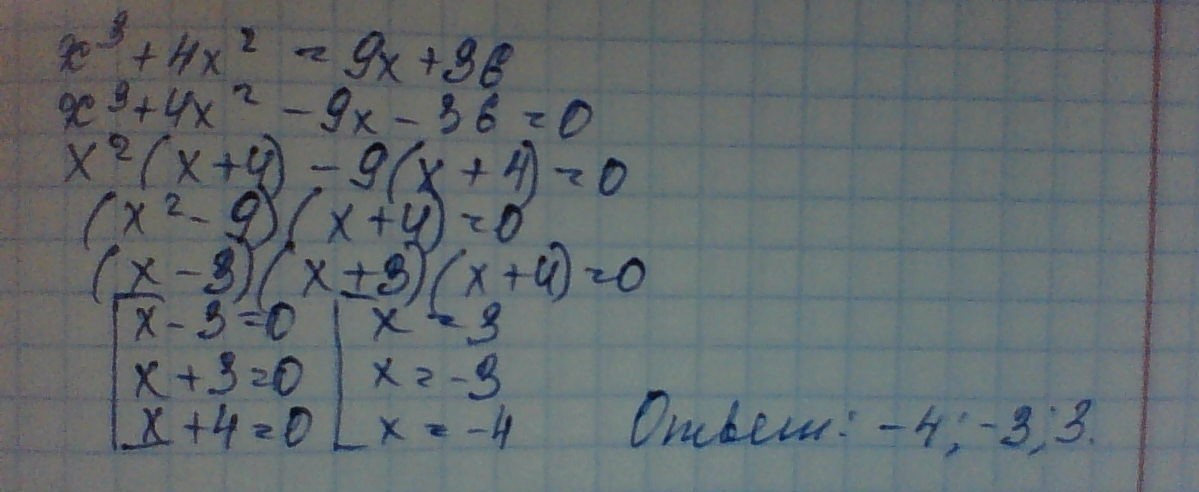 x³ + 4x² = 9x + 36
x³ + 4x² - 9x - 36 = 0
x² (x + 4) - 9 (x + 4) = 0
(x² - 9) (x + 4) = 0
(x - 3) (x + 3) (x + 4) = 0
[ x - 3 = 0 [ x = 3
x + 3 = 0 x = -3
x + 4 = 0 x = -4 Ответ: -4; -3; 3.